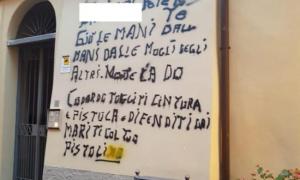 TE
GIÙ LE MANI DALL
MANS DALLE MOGLI DEGLI
ALTRI. MONTE CA DO
CODARDO TOGLITI CINTURA
E PISTOLA E DIFENDITI DAI
MARITI COL TUO
PISTOLI